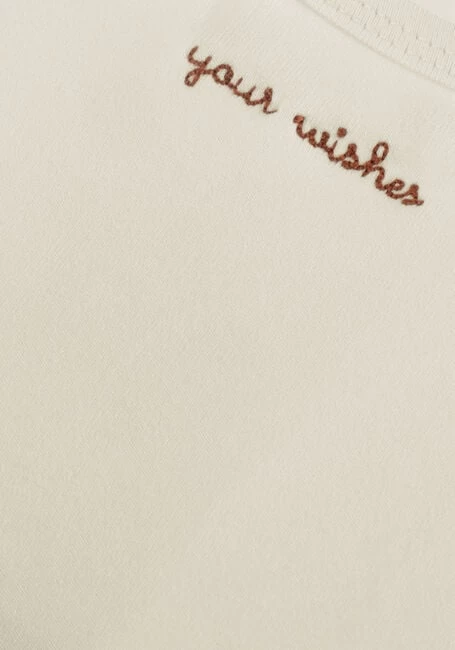 your wishes